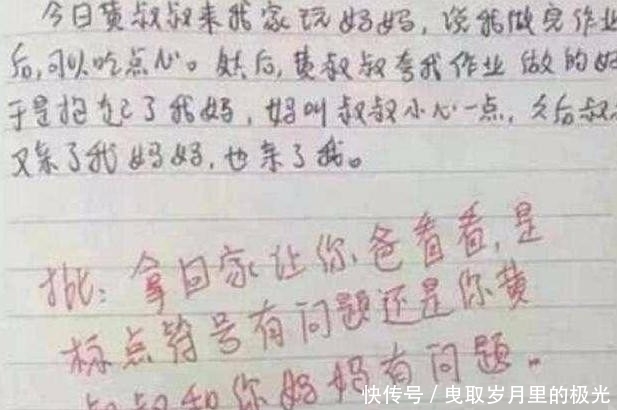 今日黄叔叔来我家玩妈妈,说我做完作业
后,可以吃点心。然后,黄叔叔夸我作业做的好
于是抱起了我妈,妈叫叔叔小心一点,之后叔
又亲了我妈妈,也亲了我。
批:拿回家让你爸看看,是
标点符号有问题还是你黄
叔叔和你妈妈有问题。
快传号/曳取岁月里的极光